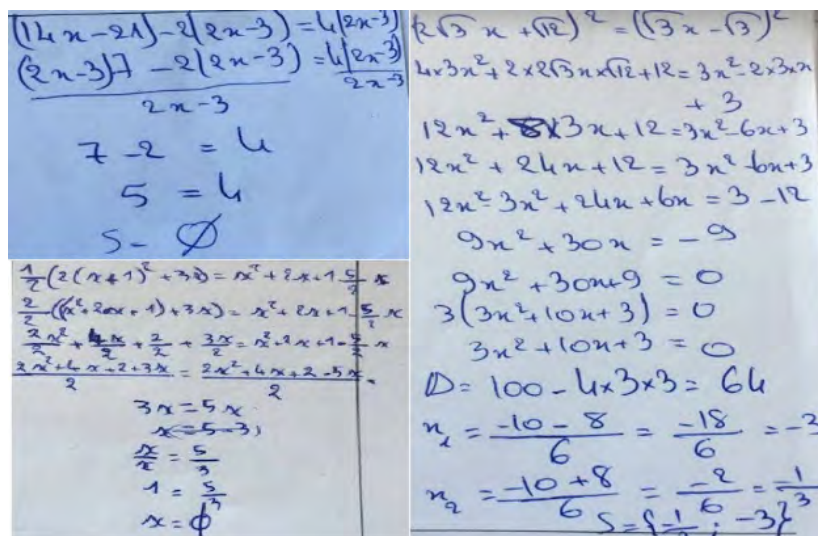 (14x-21)-2(2x-3)=4(2x-3)
(2x-3)7-2(2x-3)=4(2x-3)
2x-3 2x-3
7-2=4
5=4
S=∅
1/2(2(x+1)²+3x)=x²+2x+1-5/2x
2/2((x²+2x+1)+3x)=x²+2x+1-5/2x
2x²/2+4x/2+2/2+3x/2=x²+2x+1-5/2x
2x²+4x+2+3x/2=2x²+4x+2-5x/2
3x=5x
x=5-3
x/x=5/3
1=5/3
x=∅
(2√3x+√12)²=(√3x-√3)²
4×3x²+2×2√3x×√12+12=3x²-2×3×x
+3
12x²+8×3x+12=3x²-6x+3
12x²+24x+12=3x²-6x+3
12x²-3x²+24x+6x=3-12
9x²+30x=-9
9x²+30x+9=0
3(3x²+10x+3)=0
3x²+10x+3=0
D=100-4×3×3=64
x₁=-10-8/6=-18/6=-3
x₂=-10+8/6=-2/6=-1/3
S={-1/3;-3}